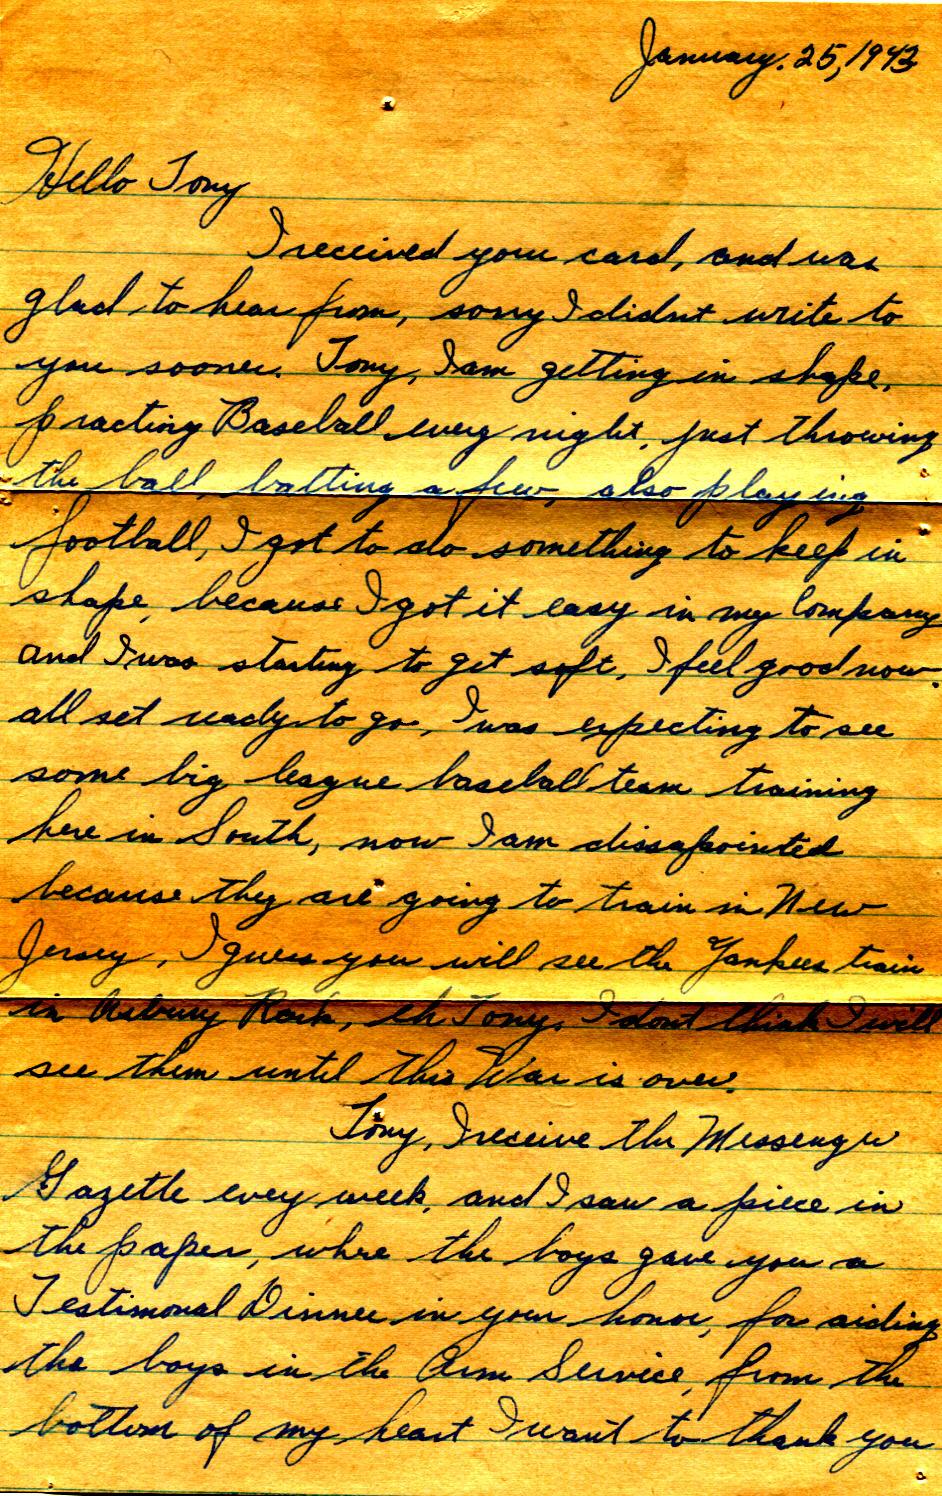 January. 25, 1943
Hello Tony
I received your card, and was
glad to hear from, sorry I didnt write to
you sooner. Tony, I am getting in shape,
practing Baseball every night, just throwing
the ball, batting a few, also playing
football, I got to do something to keep in
shape, because I got it easy in my Company
and I was starting to get soft, I feel good now.
all set ready to go, I was expecting to see
some big league baseball team training
here in South, now I am dissapointed
because they are going to train in New
Jersey, I guess you will see the Yankees train
in Asbury Park, eh Tony, I dont think I will
see them until this War is over.
Tony, I receive the Messenger
Gazette evey week, and I saw a piece in
the paper, whre the boys gave you a
Testimonal Dinner in your honor, for aiding
the boys in the Arm Service, from the
bottom of my heart I want to thank you